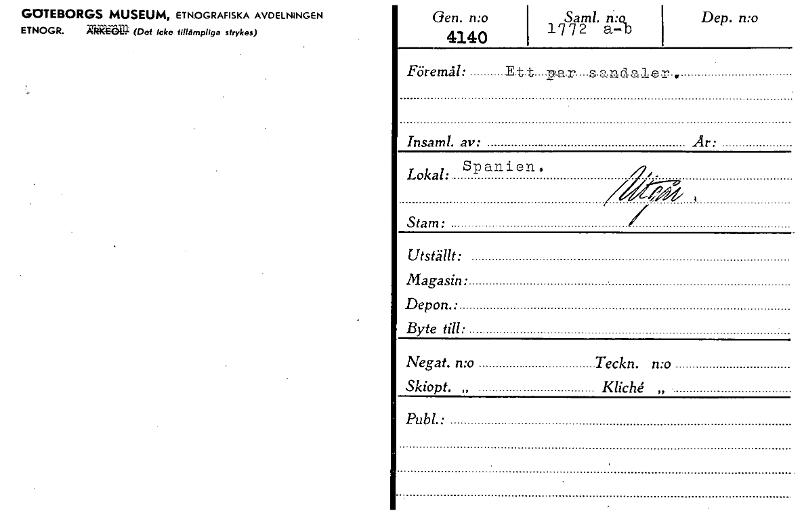 GÖTEBORGS MUSEUM, ETNOGRAFISKA AVDELNINGEN
ETNOGR. ARKEOL. (Det icke tillämpliga strykes)
Gen. n:o Saml. n:o Dep. n:o
4140 1772 a-b
Föremål: Ett par sandaler.
Insaml. av: År:
Lokal: Spanien.
Utgår.
Stam:
Utställt:
Magasin:
Depon.:
Byte till:
Negat. n:o Teckn. n:o
Skiopt. „ Kliché „
Publ.: